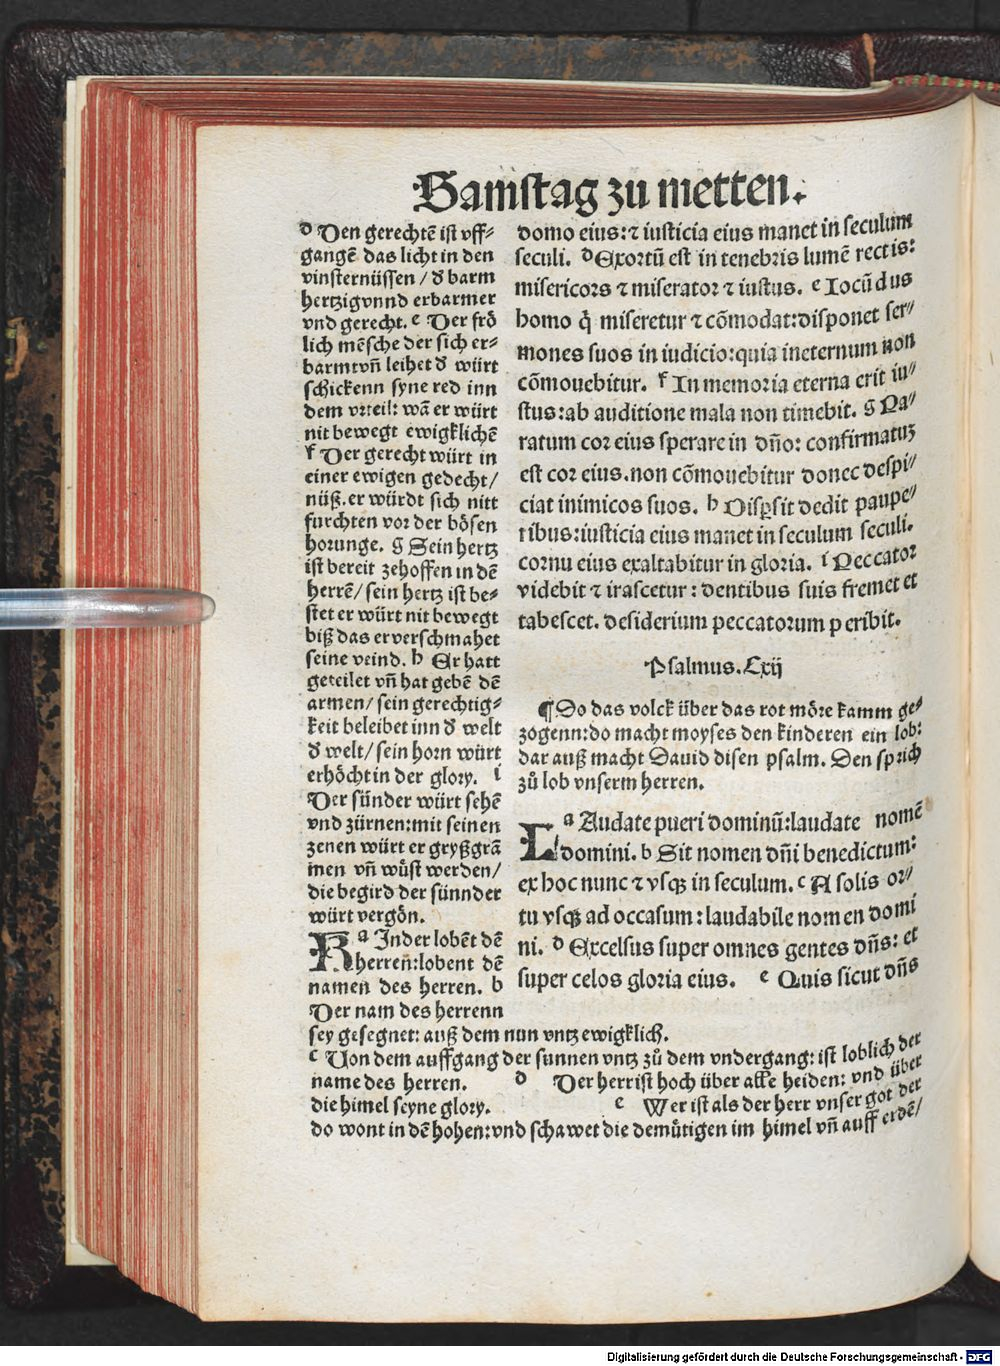 Samstag zu metten.
d Den gerechtē ist vff⸗
gangē das licht in den
vinsternüssen / d̕ barm
hertzig vnnd erbarmer
vnd gerecht. e Der frö
lich mēsche der sich er⸗
barmt vñ leihet d̕ würt
schickenn syne red inn
dem vrteil: wā er würt
nit bewegt ewigklichē
f Der gerecht würt in
einer ewigen gedecht/
nüß. er würdt sich nitt
furchten vor der bösen
horunge. g Sein hertz
ist bereit zehoffen in dē
herrē/ sein hertz ist be⸗
stet er würt nit bewegt
biß das er verschmahet
seine veind. h Er hatt
geteilet vñ hat gebē dē
armen/ sein gerechtig⸗
keit beleibet inn d̕ welt
d̕ welt/ sein horn würt
erhöcht in der glory. i
Der sünder würt sehē
vnd zürnen: mit seinen
zenen würt er gryßgrā
men vñ wüst werden/
die begird der sünnder
würt vergön.
domo eius: ⁊ iusticia eius manet in seculum
seculi. d Exortū est in tenebris lumē rectis:
misericors ⁊ miserator ⁊ iustus. e Iocūdus
homo q̄ miseretur ⁊ cōmodat: disponet ser⸗
mones suos in iudicio: quia ineternum non
cōmouebitur. f In memoria eterna erit iu⸗
stus: ab auditione mala non timebit. g Pa⸗
ratum cor eius sperare in dño: confirmatuꝫ
est cor eius. non cōmouebitur donec despi⸗
ciat inimicos suos. h Disꝑsit dedit paupe⸗
ribus: iusticia eius manet in seculum seculi.
cornu eius exaltabitur in gloria. i Peccator
videbit ⁊ irascetur: dentibus suis fremet et
tabescet. desiderium peccatorum peribit.
Psalmus. Cxij
¶ So das volck über das rot möre kamm ge⸗
zogenn: do macht moyses den kinderen ein lob:
dar auß macht Dauid disen psalm. Den sprich
zů lob vnserm herren.
L a Audate pueri dominū: laudate nomē
domini. b Sit nomen dñi benedictum:
ex hoc nunc ⁊ vsqꝫ in seculum. c A solis or⸗
tu vsqꝫ ad occasum: laudabile nomen domi
ni. d Excelsus super omnes gentes dñs: et
super celos gloria eius. e Quis sicut dñs
K a Inder lobēt dē
herren: lobent dē
namen des herren. b
Der nam des herrenn
sey gesegnet: auß dem nun vntz ewigklich.
c Von dem auffgang der sunnen vntz zů dem vndergang: ist loblich der
name des herren. d Der herr ist hoch über alle heiden: vnd über
die himel seyne glory. e Wer ist als der herr vnser got der
do wont in dē hohen: vnd schawet die demütigen im himel vñ auff erdē/
Digitalisierung gefördert durch die Deutsche Forschungsgemeinschaft - DFG